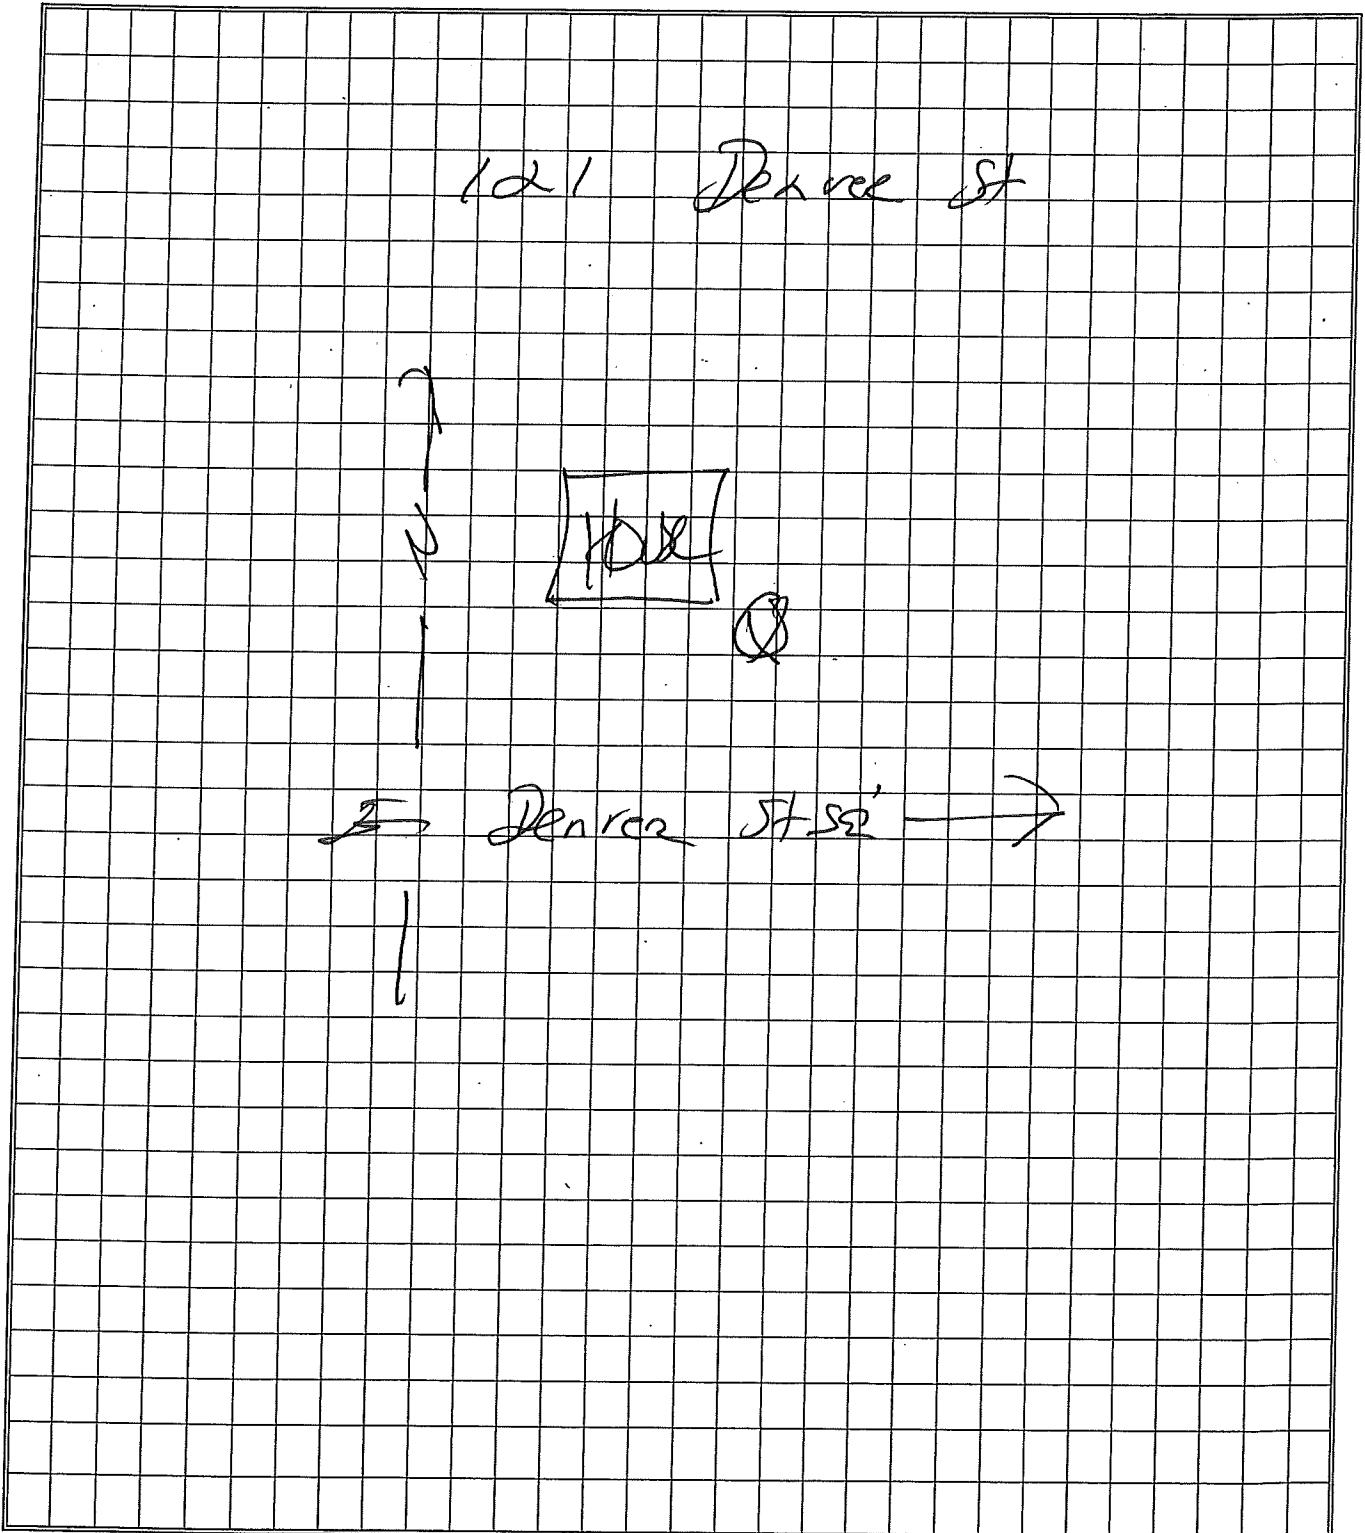 121 Denver St
N
House
Denver St SE